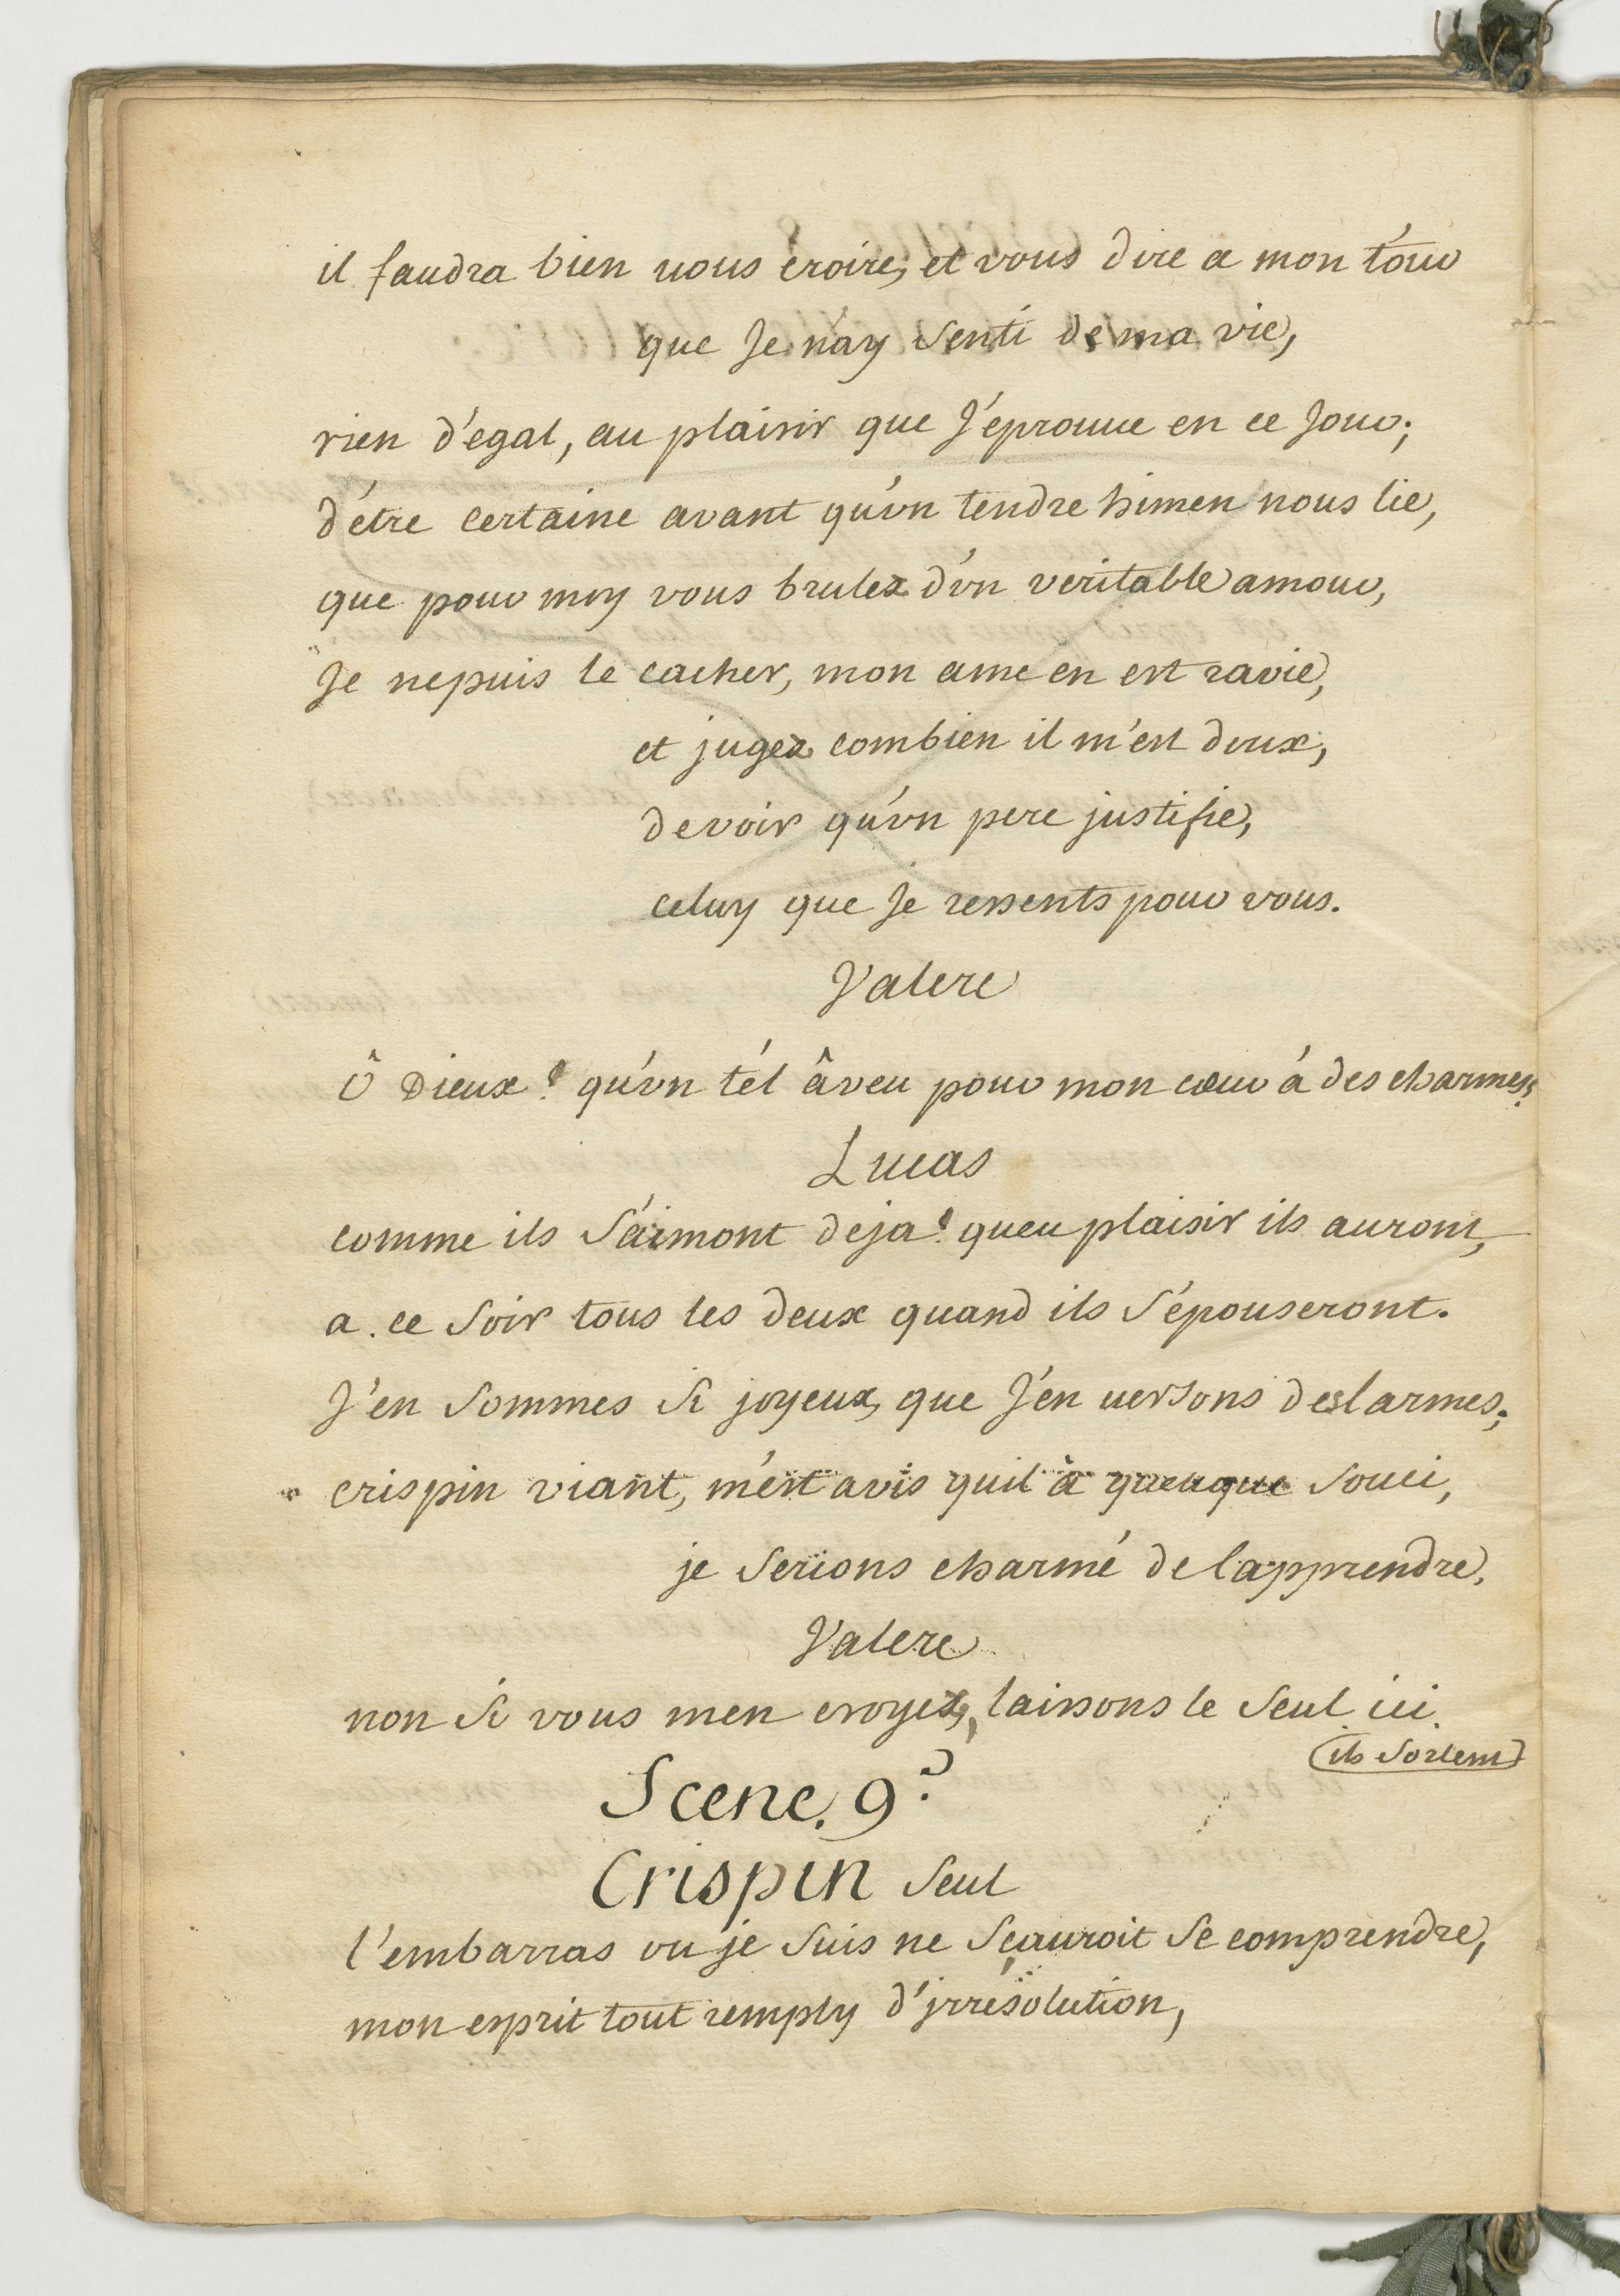 il faudra bien uous croire, et vous dire a mon tour
que Je n'ay senti de ma vie,
rien d'egal, au plaisir que J'éprouue en ce Jour;
d'étre certaine avant qu'vn tendre himen nous lie,
que pour moy vous brulez d'vn veritable amour,
Je ne puis le cacher, mon ame en est ravie,
et jugez combien il m'est doux,
devoir qu'vn pere justifie,
celuy que Je ressents pour vous.
Valere
ô Dieux! qu'vn tél âveu pour mon cœur á des charmes!
Lucas
comme ils s'aimont deja! queu plaisir ils auront,
a. ce soir tous les deux quand ils s'épouseront.
J'en sommes si joyeux, que J'en uersons des larmes;
crispin viant, m'est avis quil à queuque souci,
je serions charmé de lapprendre,
Valere
non si vous men croyez, laissons le seul ici.
(ils sortent)
Scene. 9.e
Crispin seul
l'embarras ou je suis ne sçauroit se comprendre,
mon esprit tout remply d'jrrésolution,